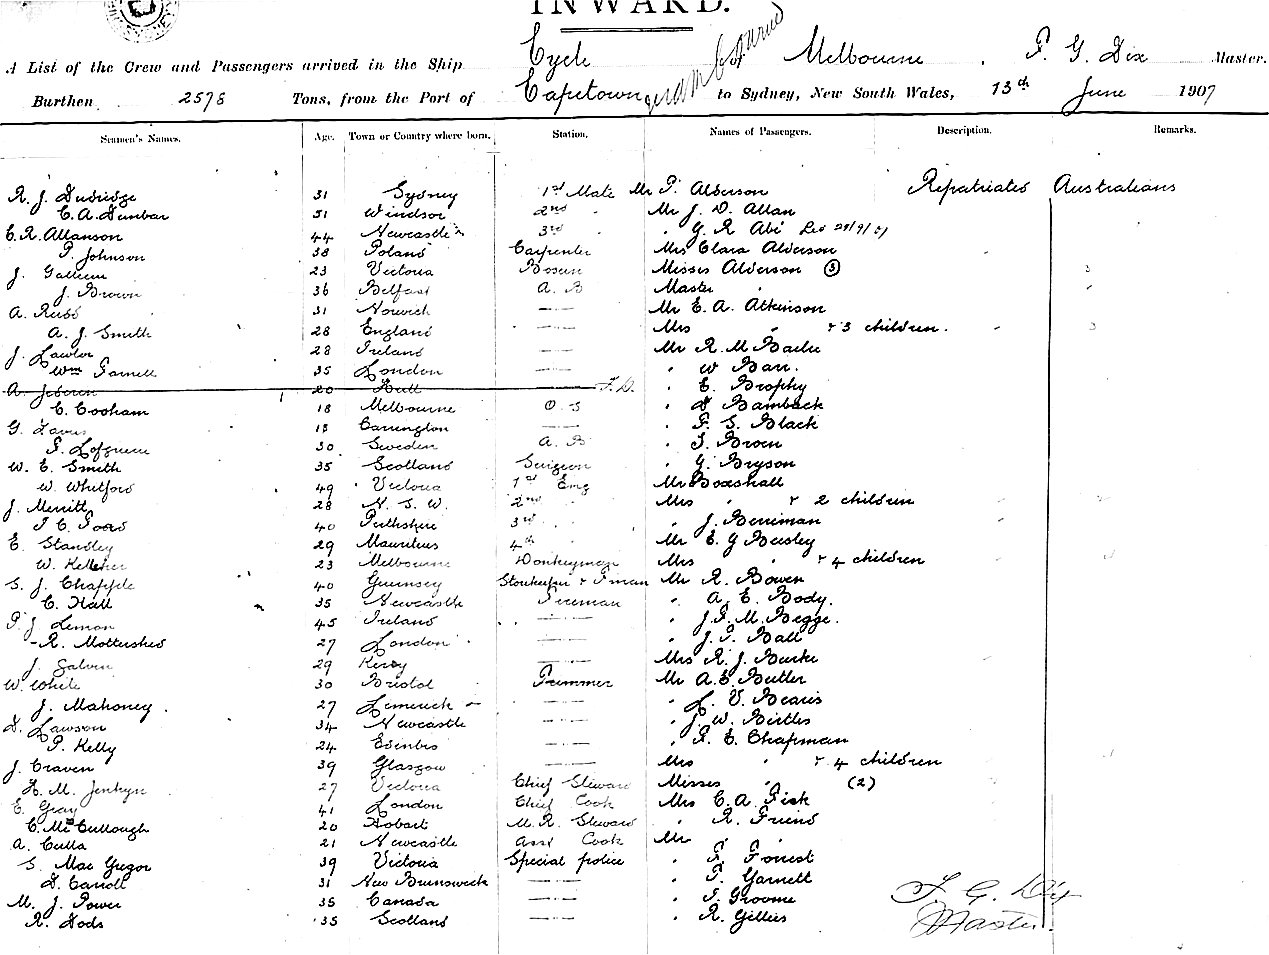 INWARD.
A List of the Crew and Passengers arrived in the Ship Cycle Melbourne, F. G. Dix Master.
Burthen 2578 Tons, from the Port of Capetown to Sydney, New South Wales, 13th June 1907
Seamen's Names. Age. Town or Country where born. Station. Names of Passengers. Description. Remarks.
R. J. Dudridge 31 Sydney 1st Mate Mr F. Alderson Repatriated Australians
C. A. Dunbar 51 Windsor 2nd " Mr J. D. Allan
C. R. Allanson 44 Newcastle 3rd " " G. R. Abi
P. Johnson 38 Poland Carpenter Mrs Clara Alderson
J. 23 Victoria Bosun Misses Alderson (3) 3
J. Brown 36 Belfast A. B Master "
A. Russ 31 Norwich — Mr E. A. Atkinson
A. J. Smith 28 England — Mrs " & 3 children. 3
J. Lawlor 28 Ireland — Mr R. M. Bailie
Wm Farnell 35 London — " W Barr.
A. 20 Hull — F.D. " E. Brophy
C. Cooham 18 Melbourne O. S " Bamback
G. 18 Carrington — " F. S. Black
Lofgreen 30 Sweden A. B " Brown
W. E. Smith 35 Scotland Surgeon " G. Bryson
W. Whitford 49 Victoria 1st Eng Mr Boxshall
J. Merritt 28 N. S. W. 2nd " Mrs " & 2 children
40 Perthshire 3rd " " J. Berriman
E. Standley 29 Mauritius 4th " Mr E. G Beesley
W. Kelleher 23 Melbourne Donkeyman Mrs " & 4 children
S. J. Chapple 40 Guernsey Storekeeper & F'man Mr R. Bowen
C. Hall 35 Newcastle Fireman " A. E. Body.
P. J. Lemon 45 Ireland — " J. F. M. Begge.
R. Mottershed 27 London — " J. F. Ball
J. Galvin 29 Kerry — Mrs R. J. Burke
W. White 30 Bristol Trimmer Mr A. E. Butler
J. Mahoney. 27 Limerick — " L. V. Bearis
D. Lawson 34 Newcastle — " J. W. Birtles
P. Kelly 24 Edinbro — " R. E. Chapman
J. Craven 39 Glasgow — Mrs " & 4 children
H. M. Jenkyn 27 Victoria Chief Steward Misses " (2)
E. Gray 41 London Chief Cook Mrs C. A. Fisk
C. McCullough 20 Hobart M. R. Steward " R. Friend
A. Culla 21 Newcastle Asst Cook Mr " "
S. MacGregor 39 Victoria Special police " Forrest
D. Carroll 31 New Brunswick — " F. Garnett
M. J. Power 35 Canada — " Groome
R. Dods 35 Scotland — " R. Gillies
F. G. Dix
Master.